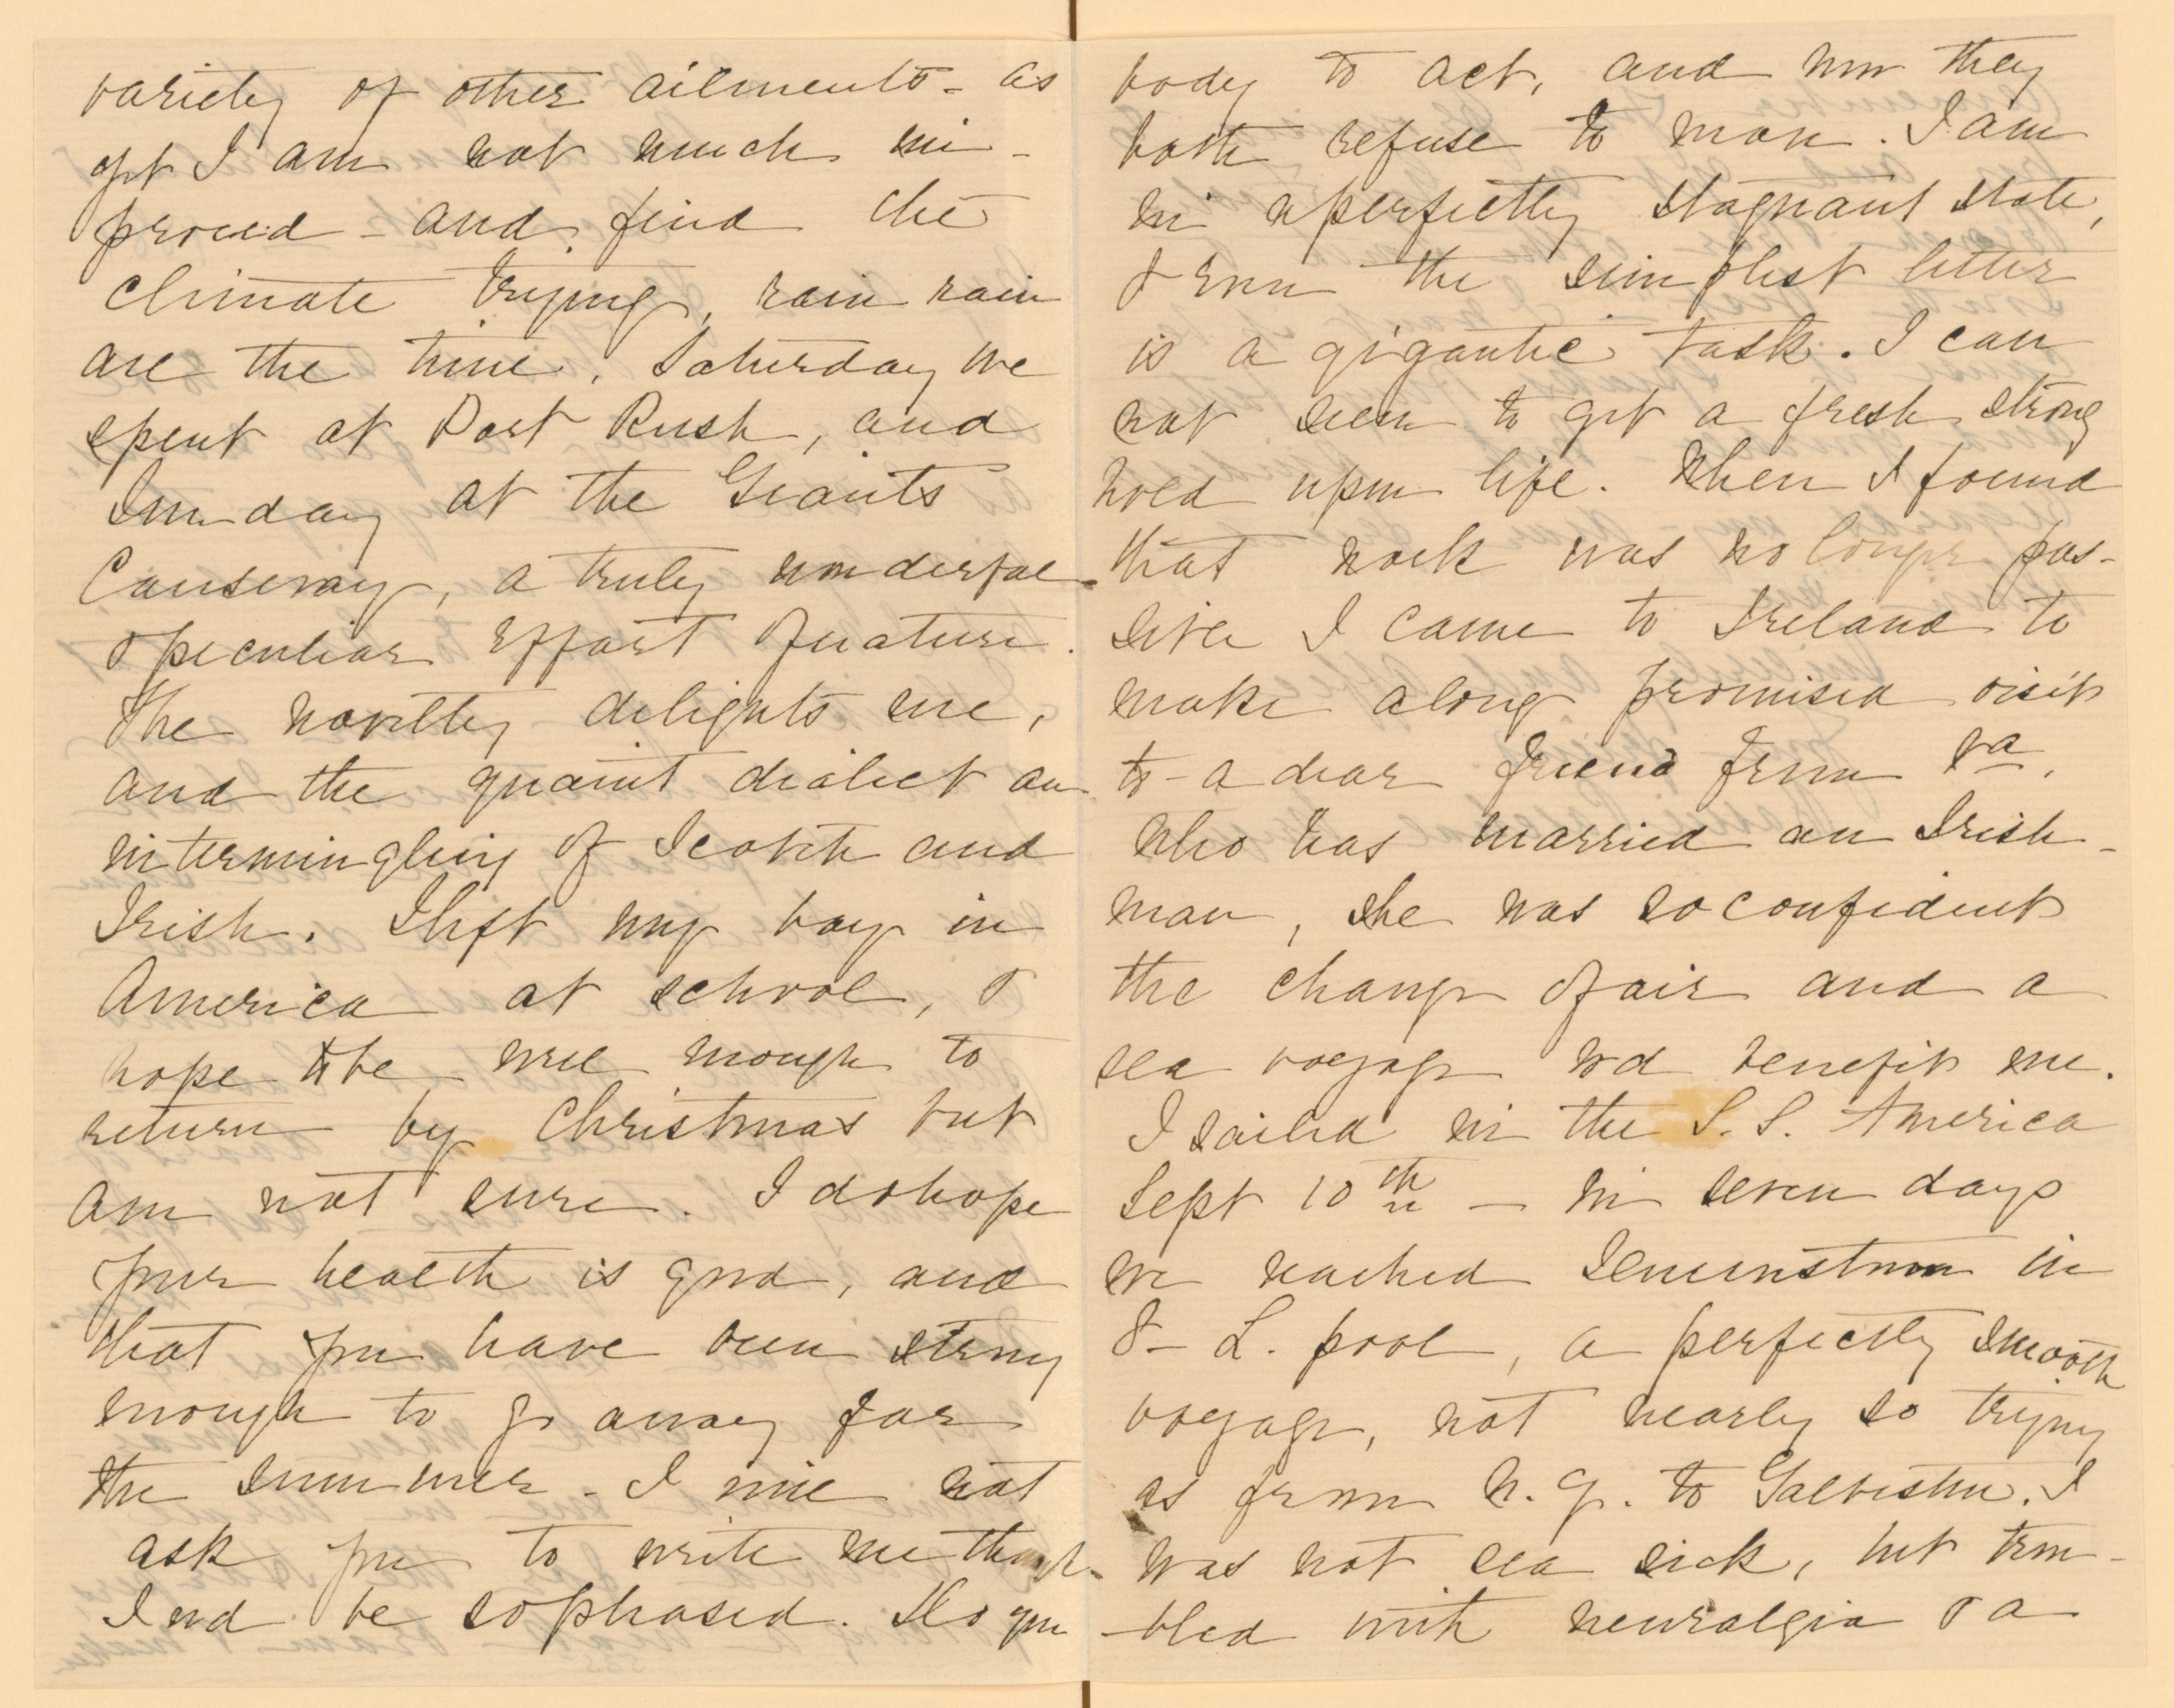 variety of other ailments - as
yet I am not much im-
proved - and find the
climate trying, rain rain
all the time. Saturday we
spent at Port Rush, and
Sunday at the Giants
Causeway, a truly wonderful
& peculiar effort of nature.
The novelty delights me,
and the quaint dialect an
intermingling of Scotch and
Irish. I left my boy in
America at school, &
hope to be well enough to
return by Christmas but
am not sure. I do hope
your health is good, and
that you have been strong
enough to go away for
the summer - I will not
ask you to write me though
I wd be so pleased. Do you
body to act, and now they
both refuse to move. I am
in a perfectly stagnant state,
& even the simplest letter
is a gigantic task. I can
not seem to get a fresh strong
hold upon life. When I found
that work was no longer pos-
sible I came to Ireland to
make a long promised visit
to - a dear friend from Va.
who has married an Irish-
man, she was so confident
the change of air and a
sea voyage wd benefit me.
I sailed in the S. S. America
Sept 10th - in seven days
we reached Queenstown in
8 - L. pool, a perfectly smooth
voyage, not nearly so trying
as from N. Y. to Galveston. I
was not sea sick, but trou-
-bled with neuralgia & a